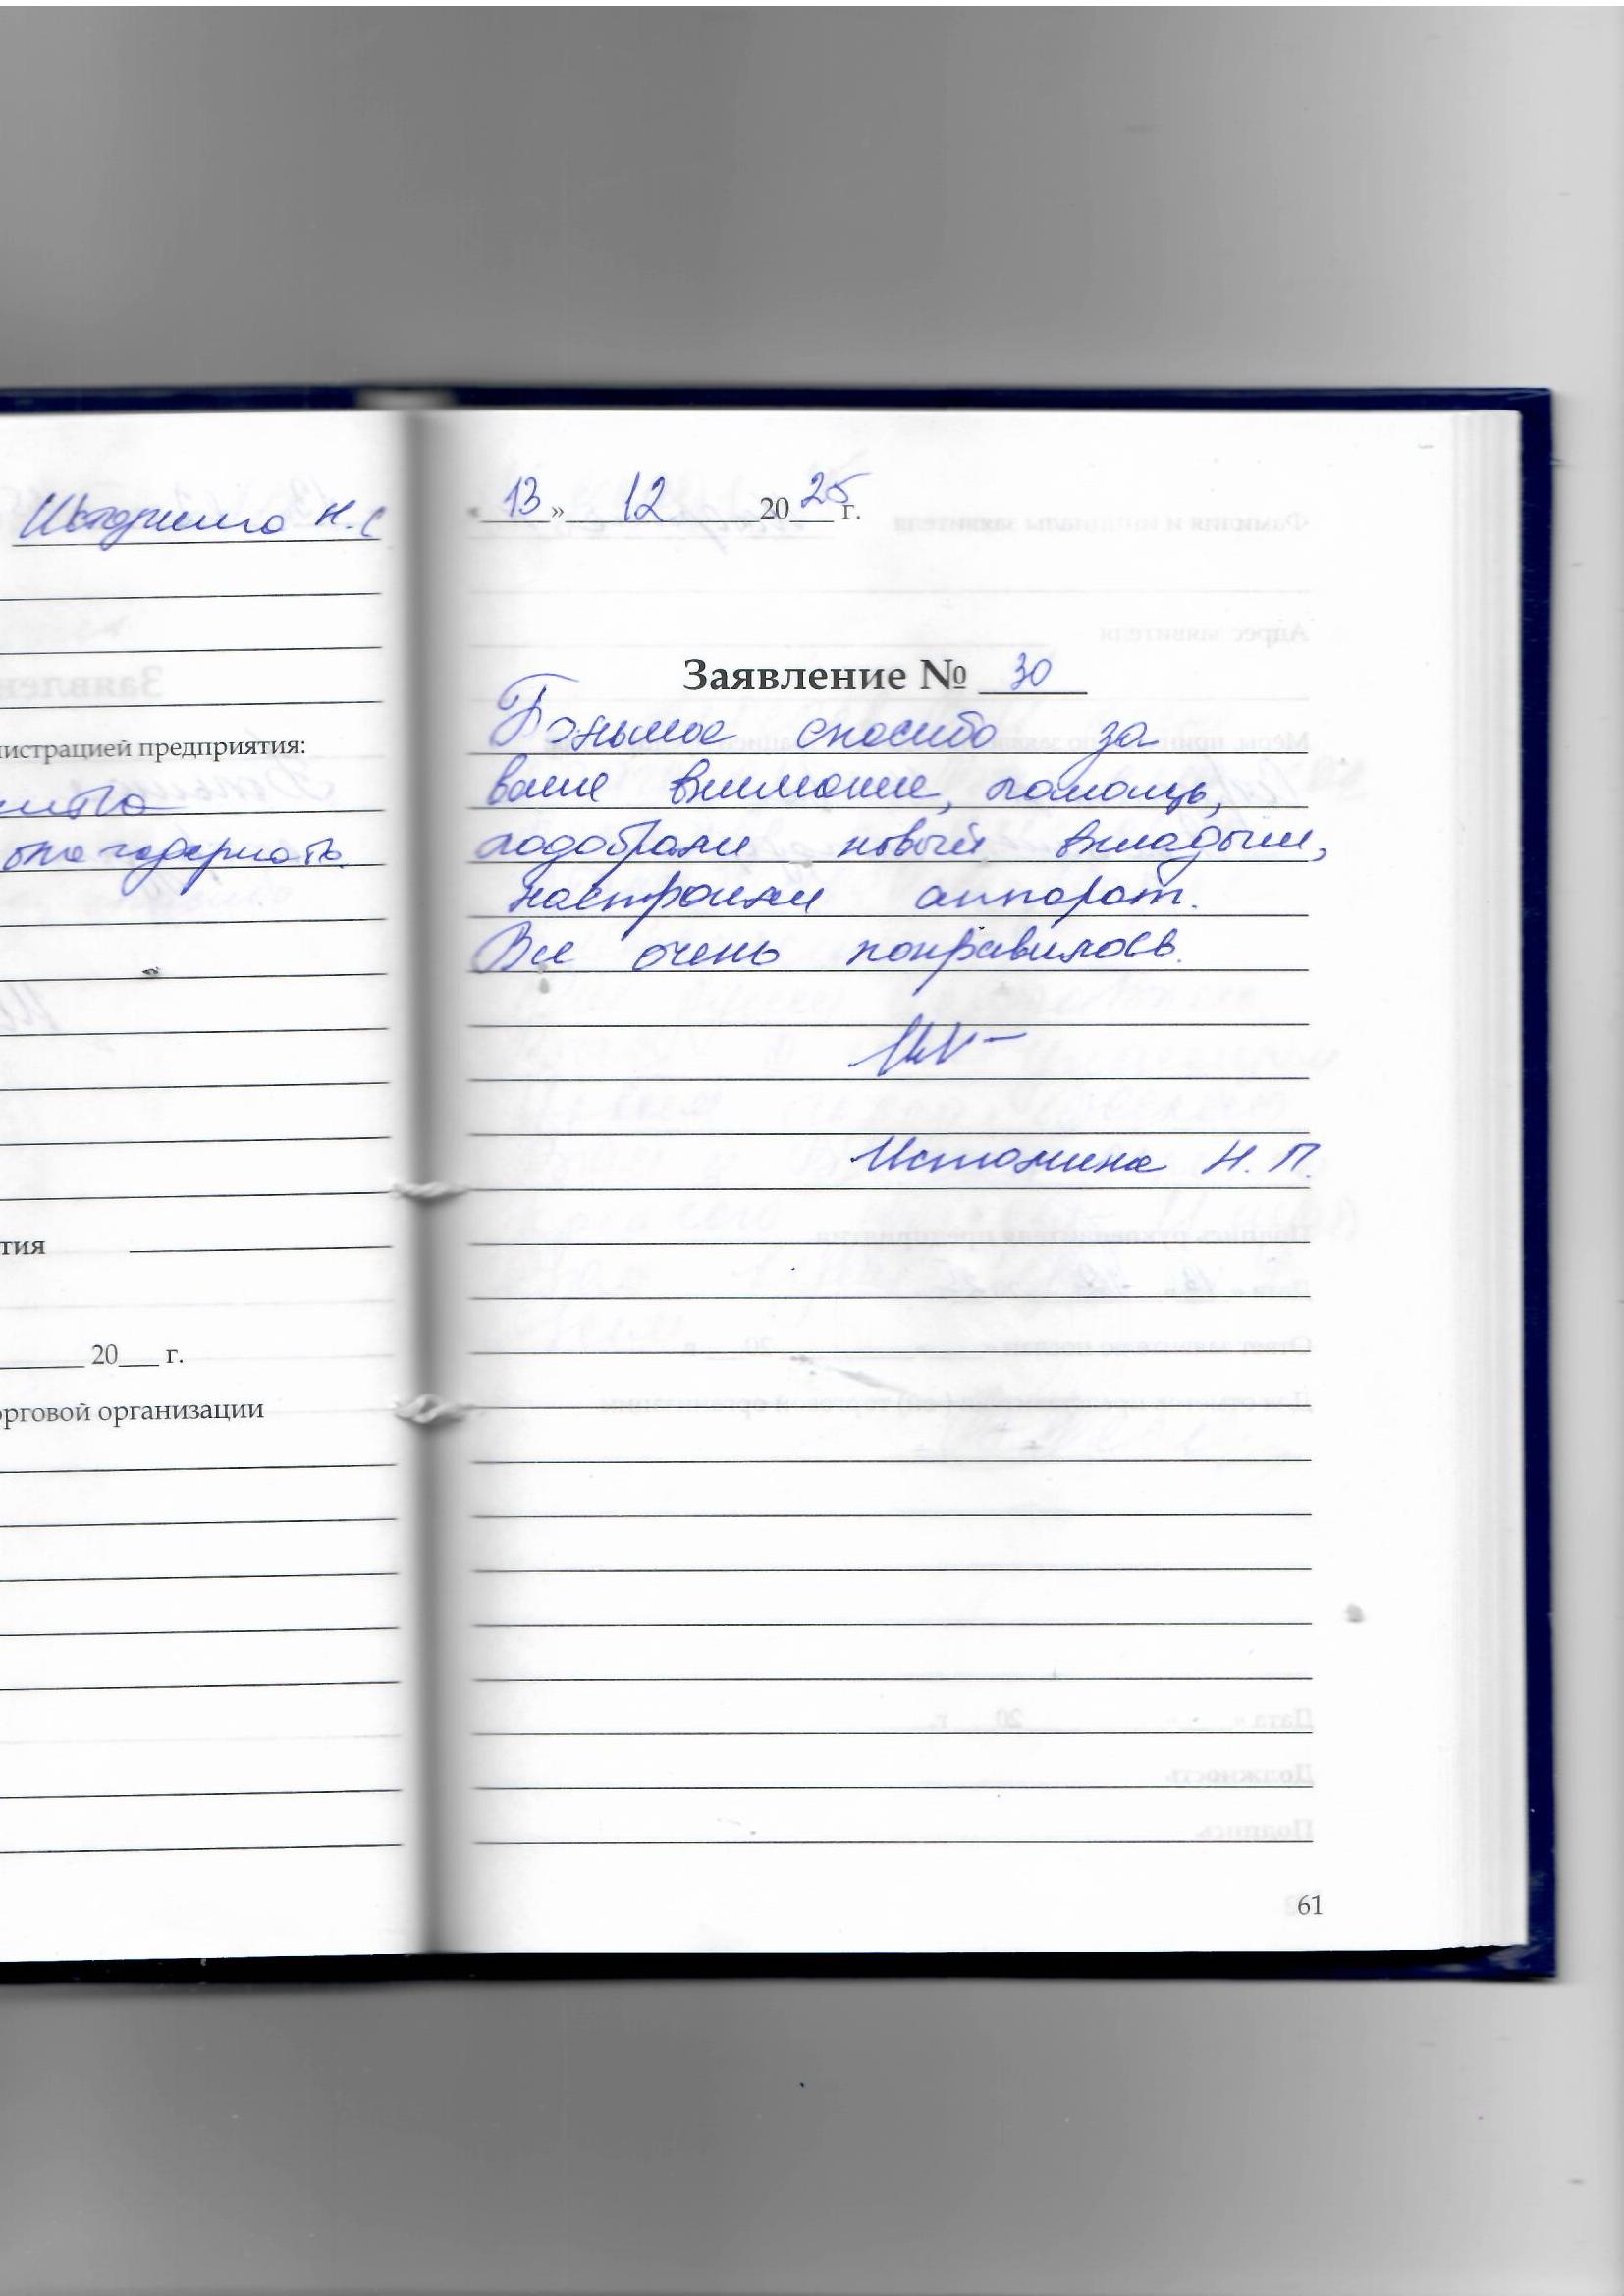 нистрацией предприятия:
тия
20___ г.
орговой организации
« 13 » 12 2025 г.
Заявление № 30
Большое спасибо за
ваше внимание, помощь,
подобрали новый вкладыш,
настроили аппарат.
Все очень понравилось.
Истомина Н. П.
61